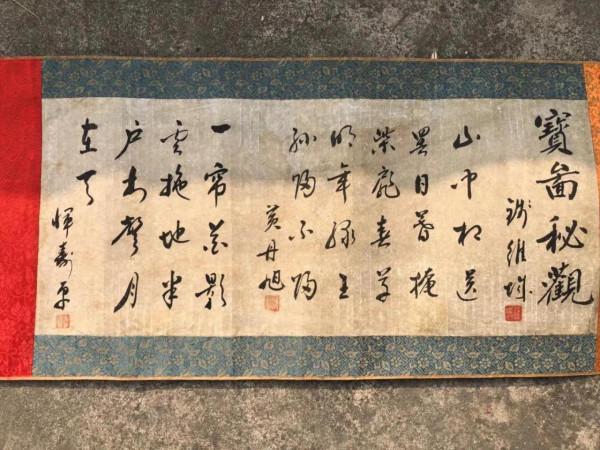 寶啚秘觀
錢維
山中相送
罷日暮掩
柴扉春草
明年緑王
孫歸不歸
費丹旭
一帘花影
雲拖地半
户書聲月
在天
惲壽平